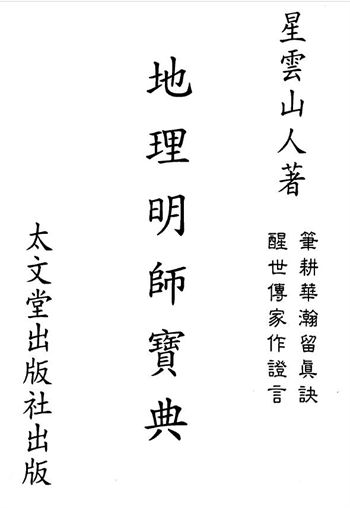 星雲山人著
筆耕華瀚留眞訣
醒世傳家作證言
地理明師寶典
太文堂出版社出版